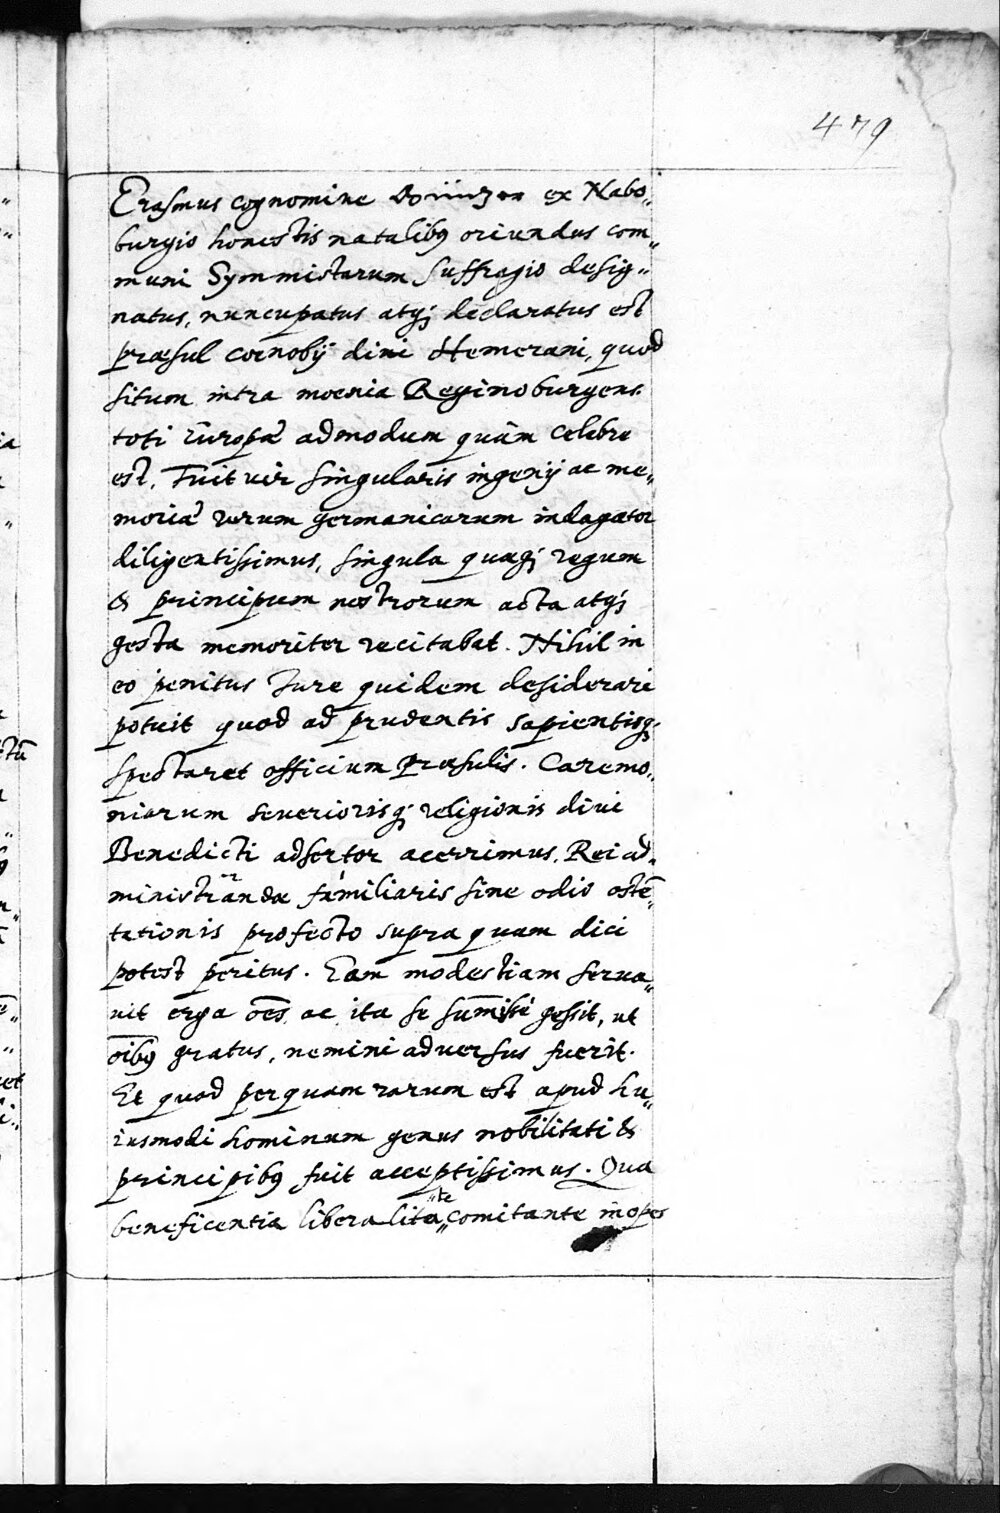 479
Erasmus cognomine ex Nabo„
burgio honestis natalibꝯ oriundus com„
muni Symmistarum suffragio desig„
natus, nuncupatus atqꝫ declaratus est
præsul cœnobij diui Hemerani, quod
situm intra moenia Reginoburgens.
toti Europæ admodum quàm celebre
est. Fuit uir singularis ingenij ac me„
moriæ rerum germanicarum indagator
diligentissimus, singula quæqꝫ regum
& principum nostrorum acta atqꝫ
gesta memoriter recitabat. Nihil in
eo penitus Jure quidem desiderari
potuit quod ad prudentis sapientisqꝫ
spectaret officium Præsulis. Cæremo„
niarum seuriorisqꝫ religionis diui
Benedicti adsertor acerrimus. Rei ad„
ministrandæ familiaris sine odio ostē„
tationis profecto supra quam dici
potest peritus. Eam modestiam serua„
uit erga oēs, ac ita se sum̄issè gessit, ut
oībꝯ gratus, nemini aduersus fuerit.
Et quod perquam rarum est apud hu„
iusmodi hominum genus nobilitati &
principibꝯ fuit acceptissimus. Qua
beneficentia liberalita„te„ comitante inopes